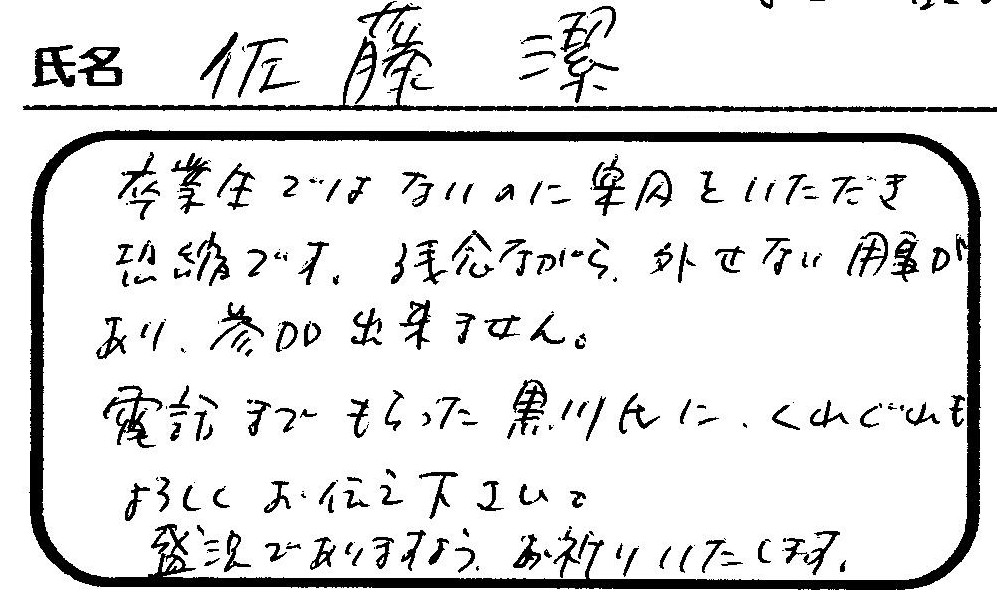 氏名 佐藤 潔
卒業生ではないのに案内をいただき
恐縮です。残念ながら、外せない用事が
あり、参加出来ません。
電話までもらった黒川氏に、くれぐれも
よろしくお伝え下さい。
盛況でありますよう、お祈りいたします。